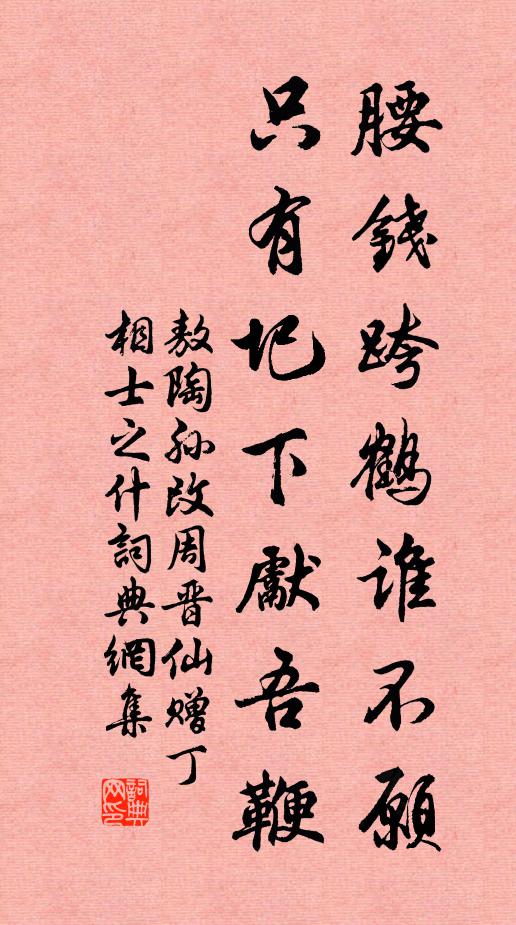 腰錢跨鶴谁不願
只有圯下獻吾鞭
敖陶孙改周晋仙赠丁
相士之什詞典網集
詞典网印